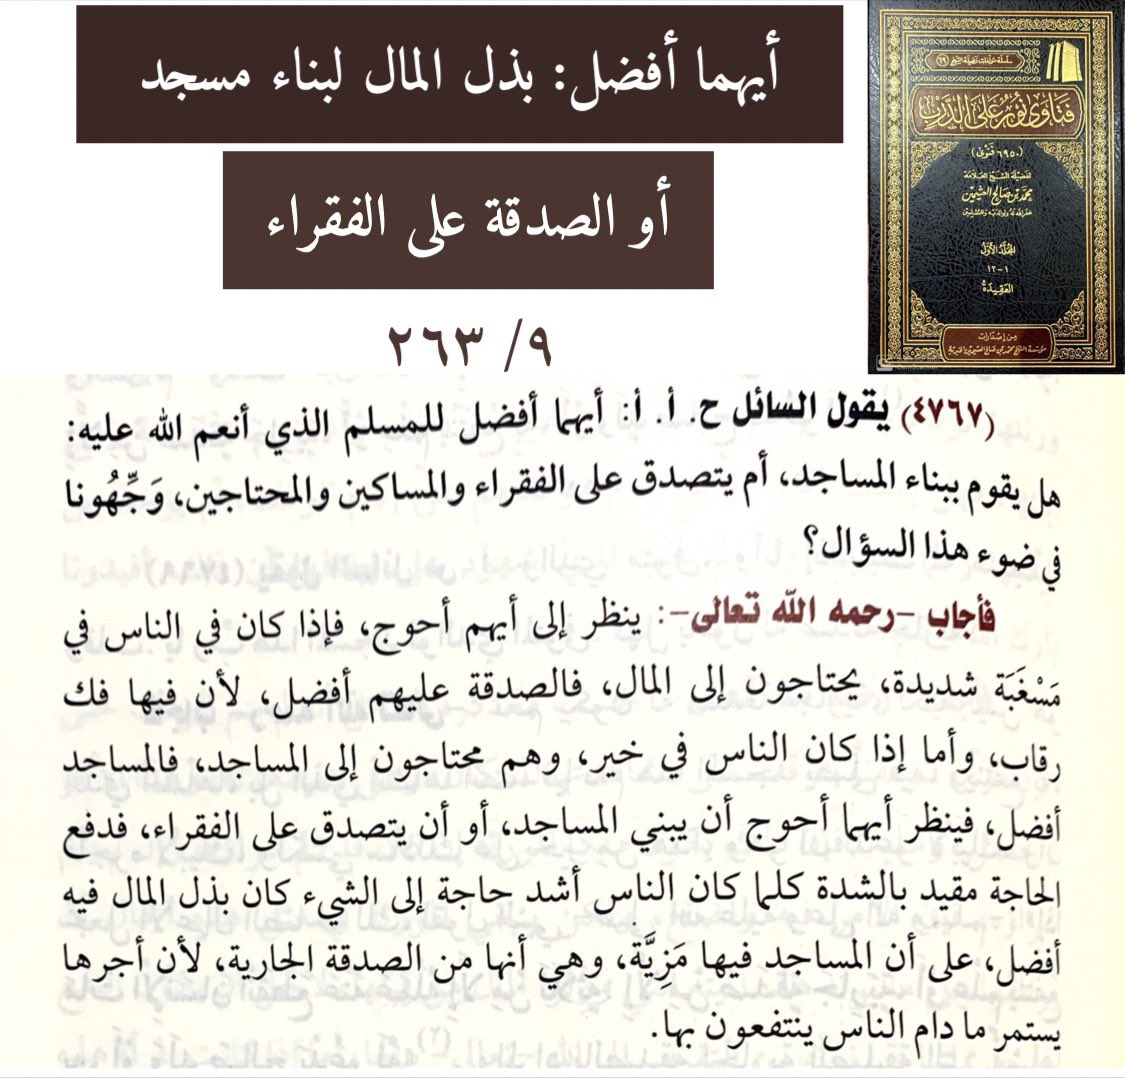 أيهما أفضل: بذل المال لبناء مسجد
أو الصدقة على الفقراء
٩/ ٢٦٣
سلسلة مؤلفات فضيلة الشيخ (٦٩)
فتاوى نور على الدرب
(٦٩٥٠ فتوى)
لفضيلة الشيخ العلامة
محمد بن صالح العثيمين
غفر الله له ولوالديه وللمسلمين
المجلد الأول
١-١٢
العقيدة
من إصدارات
مؤسسة الشيخ محمد بن صالح العثيمين الخيرية
(٤٧٦٧) يقول السائل ح. أ. أ: أيهما أفضل للمسلم الذي أنعم الله عليه:
هل يقوم ببناء المساجد، أم يتصدق على الفقراء والمساكين والمحتاجين، وَجِّهُونا
في ضوء هذا السؤال؟
فأجاب -رحمه الله تعالى-: ينظر إلى أيهم أحوج، فإذا كان في الناس في
مَسْغَبَة شديدة، يحتاجون إلى المال، فالصدقة عليهم أفضل، لأن فيها فك
رقاب، وأما إذا كان الناس في خير، وهم محتاجون إلى المساجد، فالمساجد
أفضل، فينظر أيهما أحوج أن يبني المساجد، أو أن يتصدق على الفقراء، فدفع
الحاجة مقيد بالشدة كلما كان الناس أشد حاجة إلى الشيء كان بذل المال فيه
أفضل، على أن المساجد فيها مَزِيَّة، وهي أنها من الصدقة الجارية، لأن أجرها
يستمر ما دام الناس ينتفعون بها.